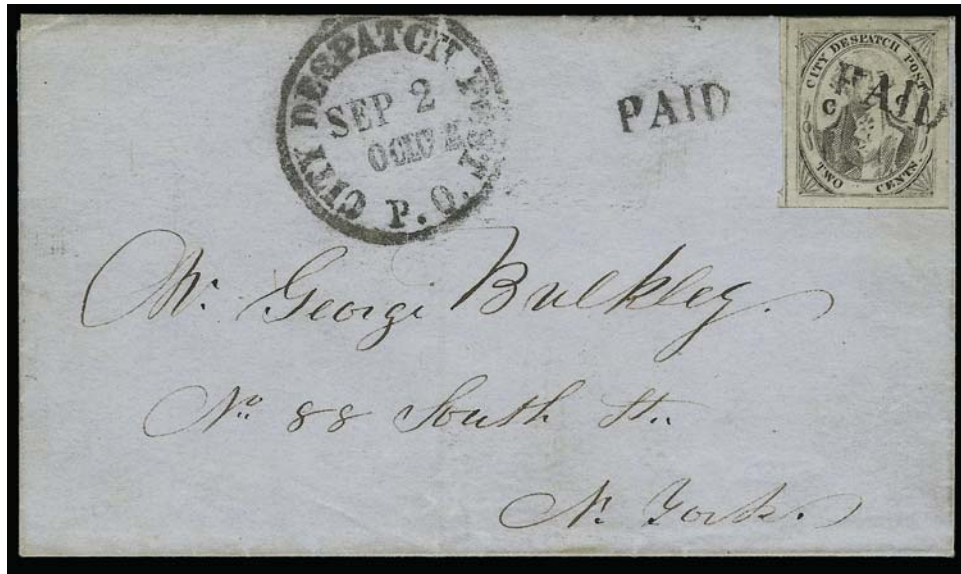 CITY DESPATCH POST
SEP 2
P.O.
PAID
CITY DESPATCH POST
PAID
C C
TWO CENTS
Mr. George Bulkley.
No 88 South St.
N. York.